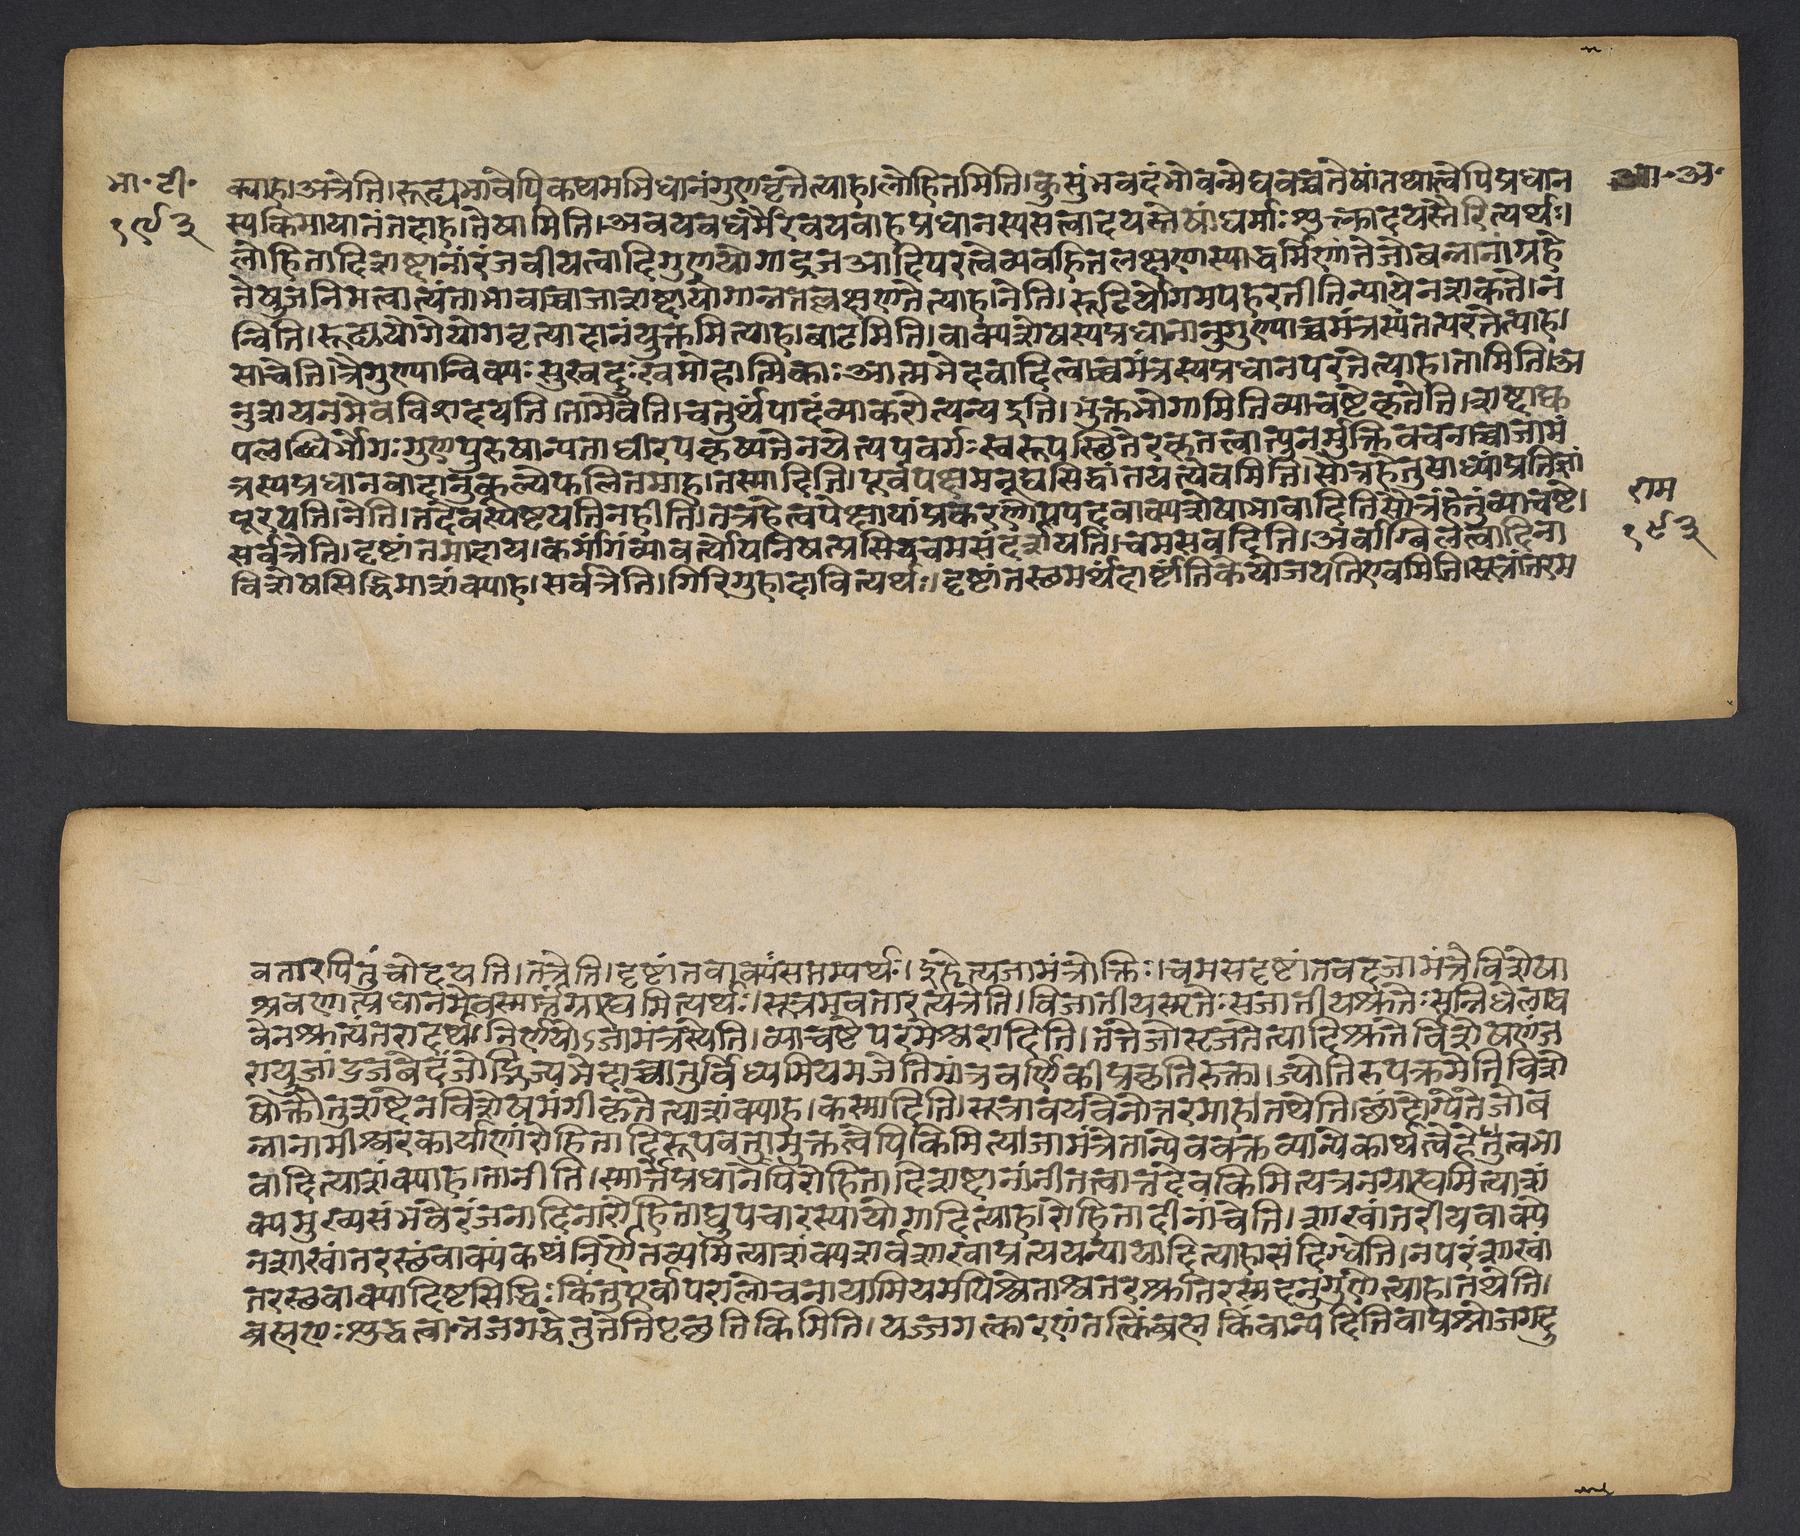 भा॰ टी॰
१९३
आ॰ अ॰
क्याह।अत्रेति।रूढ्यभावेपिकथमभिधानंगुणवृत्तेत्याह।लोहितमिति।कुसुंभवदंभोवन्मेघवच्चतेषांतथात्वेपिप्रधान
स्यकिमायातंतदाह।तेषामिति।अवयवधर्मैरिवयवाहप्रधानस्यसत्वादयस्तेषांधर्माःशुक्लादयस्तैरित्यर्थः।
लोहितादिशब्दानांरंजनीयत्वादिगुणयोगाद्रजआदिपरत्वेव्यवहितलक्षणास्याद्धर्मिणांतेजोबन्नानांग्रहे
तेषुजनिमत्वात्यंताभावाच्चाजाशब्दायोगान्नतल्लक्षणातेत्याह।नेति।रूढिर्योगमपहरतीतिन्यायेनशंकते।न
न्विति।रूढ्ययोगेयोगवृत्यादानंयुक्तमित्याह।बाढमिति।वाक्यशेषस्यप्रधानानुगुण्याच्चमंत्रस्यंतत्परतेत्याह।
साचेति।त्रैगुण्यान्विक्यःसुखदुःखमोहात्मिकाःआत्मभेदवादित्वाच्चमंत्रस्यप्रधानपरतेत्याह।तामिति।अ
नुशयनमेवविशदयति।तामेवेति।चतुर्थपादंव्याकरोत्यन्यइति।भुक्तभोगामितिव्याचष्टेकृतेति।शब्दाद्यु
पलब्धिर्भोगःगुणपुरुषान्यताधीरपकृष्यतेनयेत्यपवर्गःस्वरूपस्थितेरकृतत्वात्पुनर्मुक्तिवचनाच्चाजामं
त्रस्यप्रधानवादानुकूल्येफलितमाह।तस्मादिति।पूर्वपक्षमनूद्यसिद्धांतयत्येवमिति।सौत्रहेतुसाध्यांप्रतिज्ञां
पूरयति।नेति।तदेवस्पष्टयतिनहीति।तत्रहेत्वपेक्षायांप्रकरणोपपदवाक्यशेषाभावादितिसौत्रंहेतुंव्याचष्टे।
सर्वत्रेति।दृष्टांतमादाय।कर्मांगंव्यावर्त्योपनिषत्प्रसिद्धचमसंदर्शयति।चमसवदिति।अर्वाग्बिलत्वादिना
विशेषसिद्धिमाशंक्याह।सर्वत्रेति।गिरिगुहादावित्यर्थः।दृष्टांतस्थमर्थंदार्ष्टांतिकेयोजयतिएवमिति।सूत्रांतरम
राम
१९३
वतारयितुंचोदयति।तत्रेति।दृष्टांतवाक्यंसप्तम्यर्थः।इहेत्यजामंत्रोक्तिः।चमसदृष्टांतवदजामंत्रेविशेषा
श्रवणात्प्रधानमेवस्मार्तंग्राह्यमित्यर्थः।सूत्रमवतारत्यत्रेति।विजातीयस्मृतेःसजातीयश्रुतेःसन्निधेर्लाघ
वेनश्रुत्यंतरादर्थनिर्णयोऽजामंत्रस्येति।व्याचष्टेपरमेश्वरादिति।तत्तेजोसृजतेत्यादिश्रुतेर्विशेषणंज
रायुजांडजस्वेदजोद्भिज्जभेदाच्चातुर्विध्यमियमजेतिमांत्रवर्णिकीप्रकृतिरुक्ता।ज्योतिरुपक्रमेतिविशे
षोक्तौतुशब्देनविशेषमंगीकृतेत्याशंक्याह।कस्मादिति।सूत्रावयवेनोत्तरमाह।तथेति।छांदोग्येतेजोब
न्नानामीश्वरकार्याणांरोहितादिरूपवत्तामुक्तत्वेपिकिमित्यजामंत्रेतान्येववक्तव्यान्येकार्थत्वेहेतुत्वभा
वादित्याशंक्याह।तानीति।स्मार्तप्रधानेपिरोहितादिशब्दानांनीतत्वात्तदेवकिमित्यत्रनग्राह्यमित्याशं
क्यमुख्यसंभवेरंजनादिनारोहिताद्युपचारस्यायोगादित्याह।रोहितादीनांचेति।शाखांतरीयवाक्ये
नशाखांतरस्थंवाक्यंकथंनिर्णेतव्यमित्याशंक्यशर्वशाखाप्रत्ययन्यायादित्याह।संदिग्धेति।नपरंशाखां
तरस्थवाक्यादिष्टसिद्धिःकिंतुपूर्वापरालोचनायामियमपिश्वेताश्वतरश्रुतिरस्मदनुगुणेत्याह।तथेति।
ब्रह्मणःशुद्धत्वान्नजगद्धेतुतेतिपृच्छतिकिमिति।यज्जगत्कारणंतत्किंब्रह्मकिंवान्यदितिवाप्रश्नोजगदु